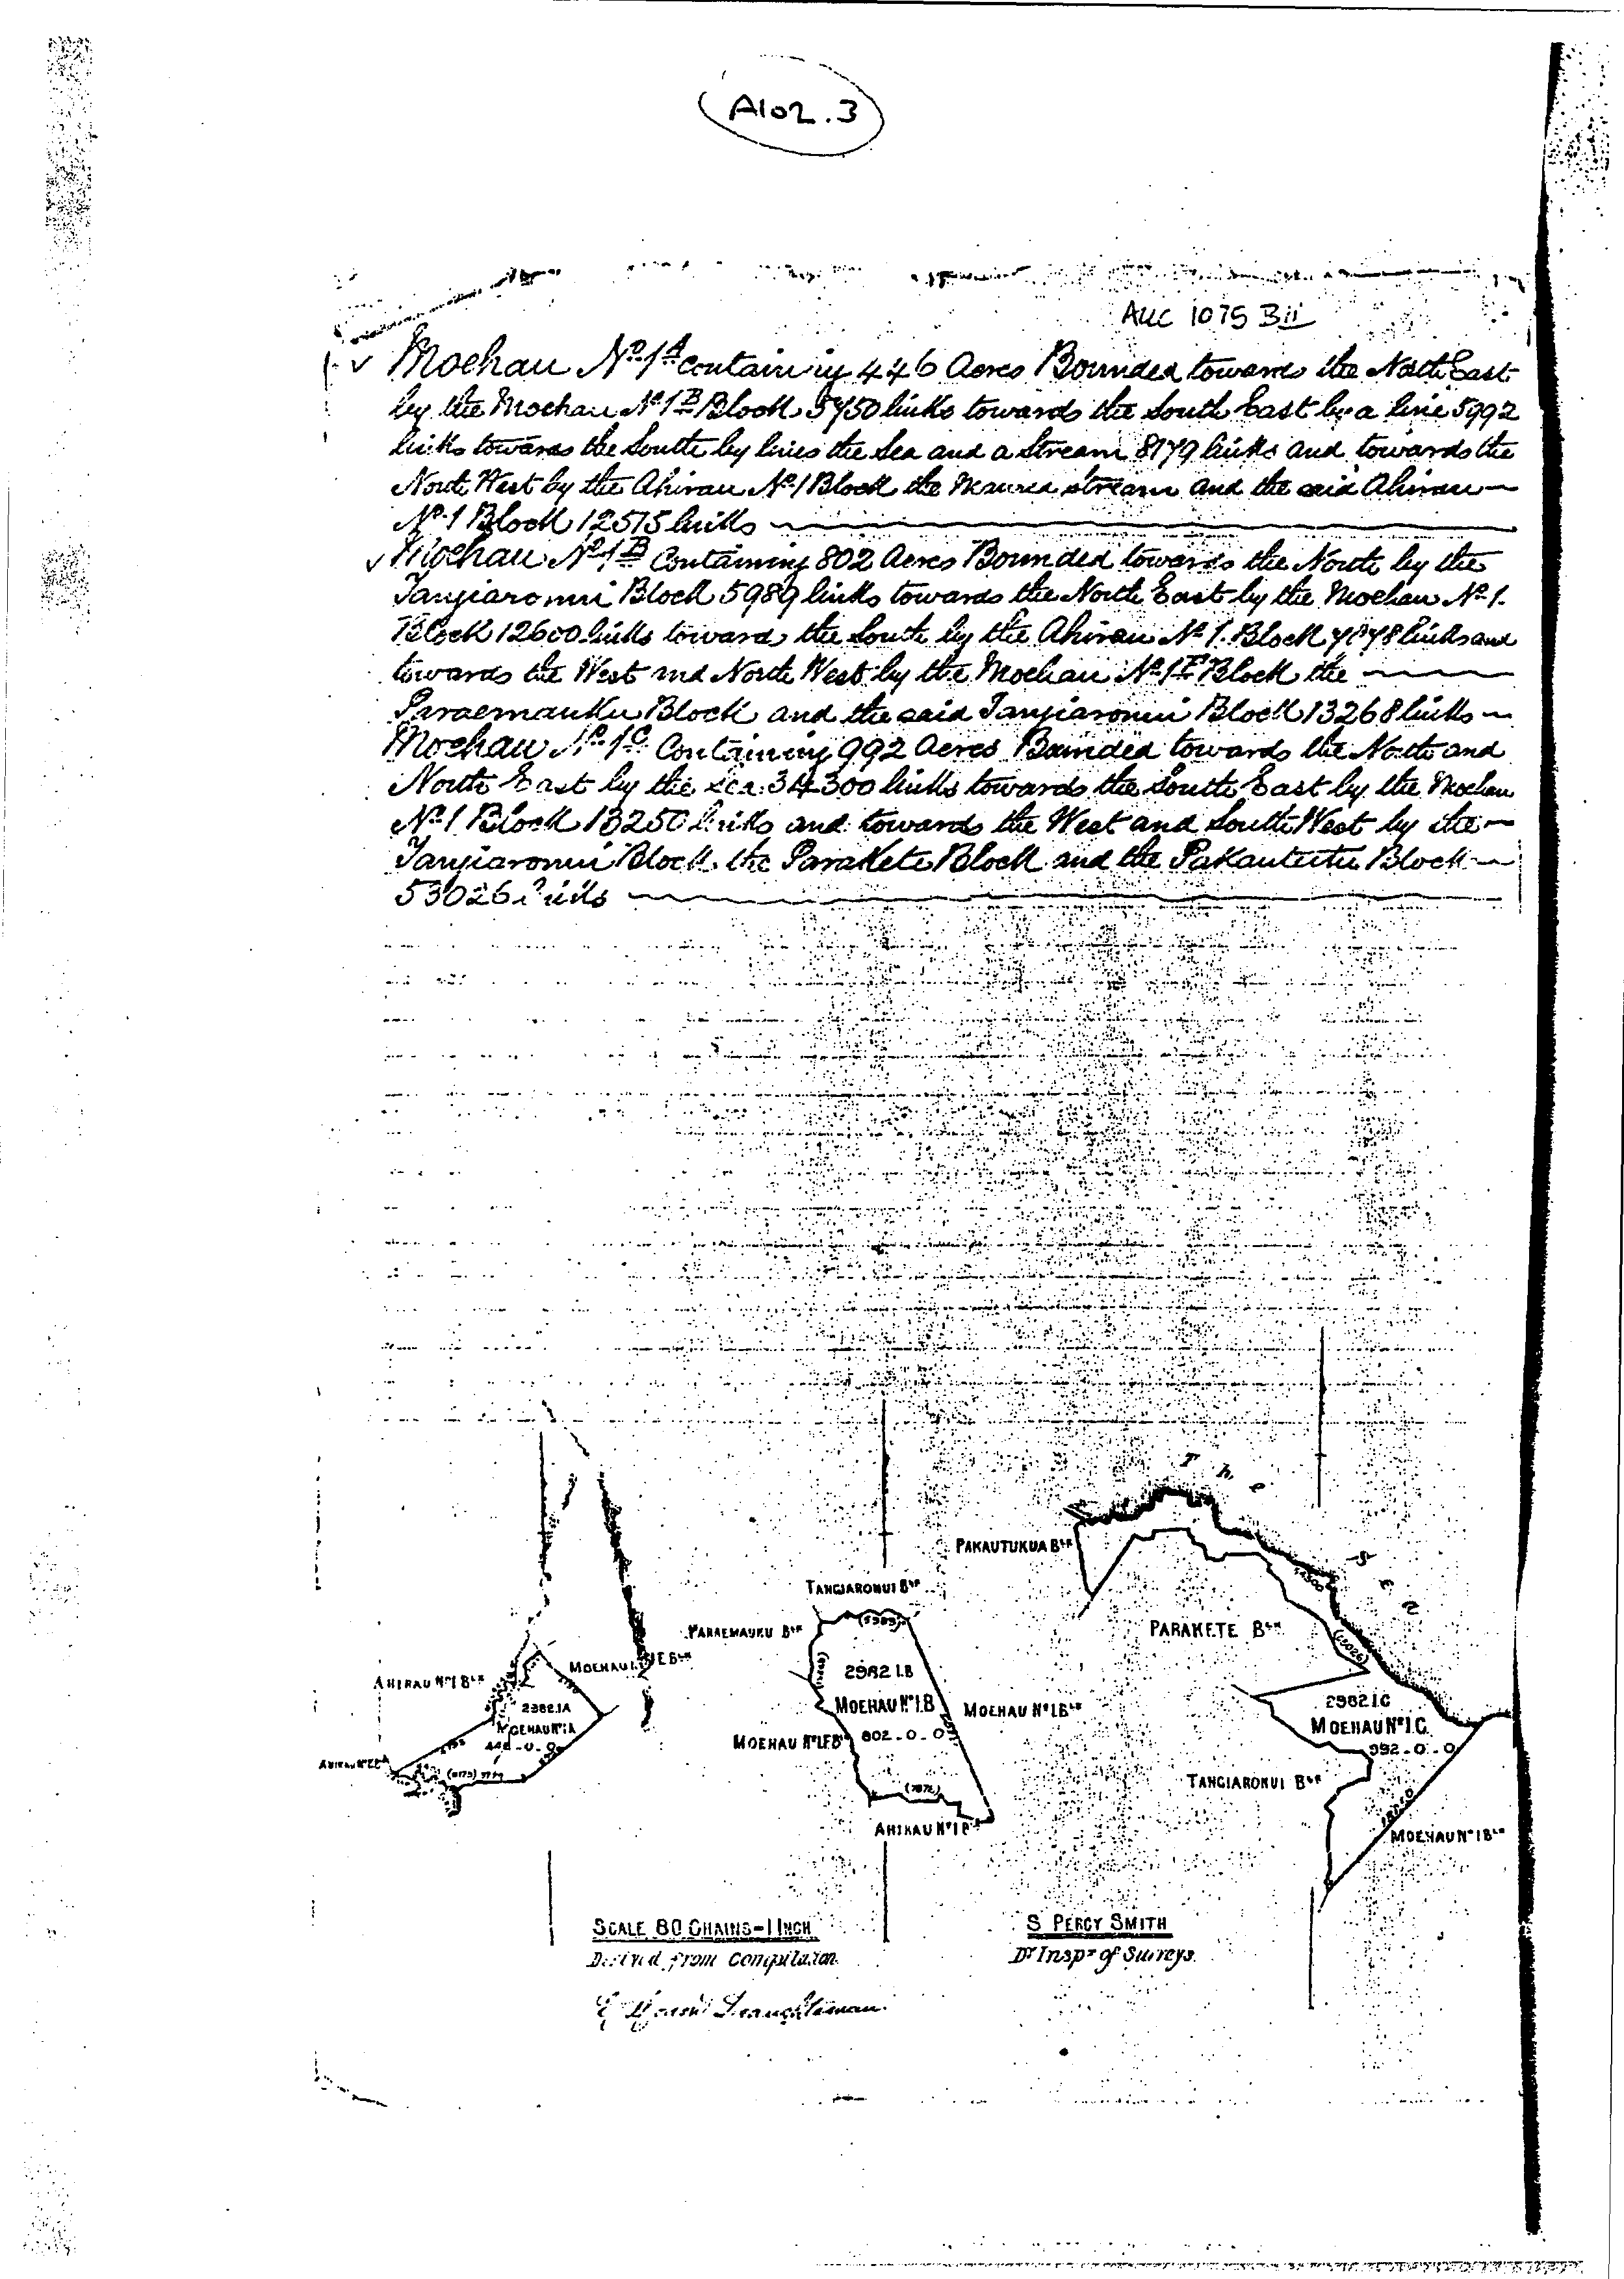 A102.3
AUC 1075 Bii
✓ Moehau No. 1A containing 446 Acres Bounded towards the North East
by the Moehau No. 1B Block 5750 links towards the South East by a line 5992
links towards the South by lines the Sea and a Stream 8179 links and towards the
North West by the Ahirau No. 1 Block the stream and the said Ahirau
No. 1 Block 12575 links
✓ Moehau No. 1B Containing 802 Acres Bounded towards the North by the
Tangiaronui Block 5989 links towards the North East by the Moehau No. 1.
Block 12600 links toward the South by the Ahirau No. 1. Block 7878 links and
towards the West and North West by the Moehau No. 1F Block the
Paraemauku Block and the said Tangiaronui Block 13268 links
Moehau No. 1C Containing 992 Acres Bounded towards the North and
North East by the sea 34300 links towards the South East by the Moehau
No. 1 Block 13250 links and towards the West and South West by the
Tangiaronui Block, the Parakete Block and the Pakaututu Block
53026 links
The Sea
PAKAUTUKUA Blk
TANGIARONUI Blk
PARAEMAUKU Blk
PARAKETE Blk
MOEHAU Blk
AHIRAU No 1 Blk
2982 1.B
2982.1A
2982.1.C
MOEHAU No 1.B
MOEHAU No 1 Blk
MOEHAU No 1.C.
MOEHAU No 1A
MOEHAU No 1F Blk
802-0-0
446-0-0
992-0-0
TANGIARONUI Blk
(8179)
AHIRAU No 1
MOEHAU No 1 Blk
SCALE 80 CHAINS=1 INCH
S PERCY SMITH
Derived from Compilation.
Dy Inspr of Surveys.
Draughtsman.